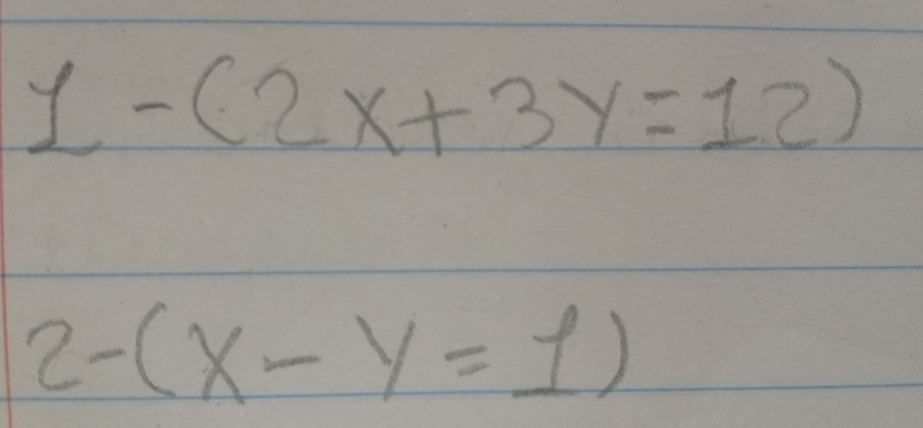 1-(2x+3y=12)
2-(x-y=1)